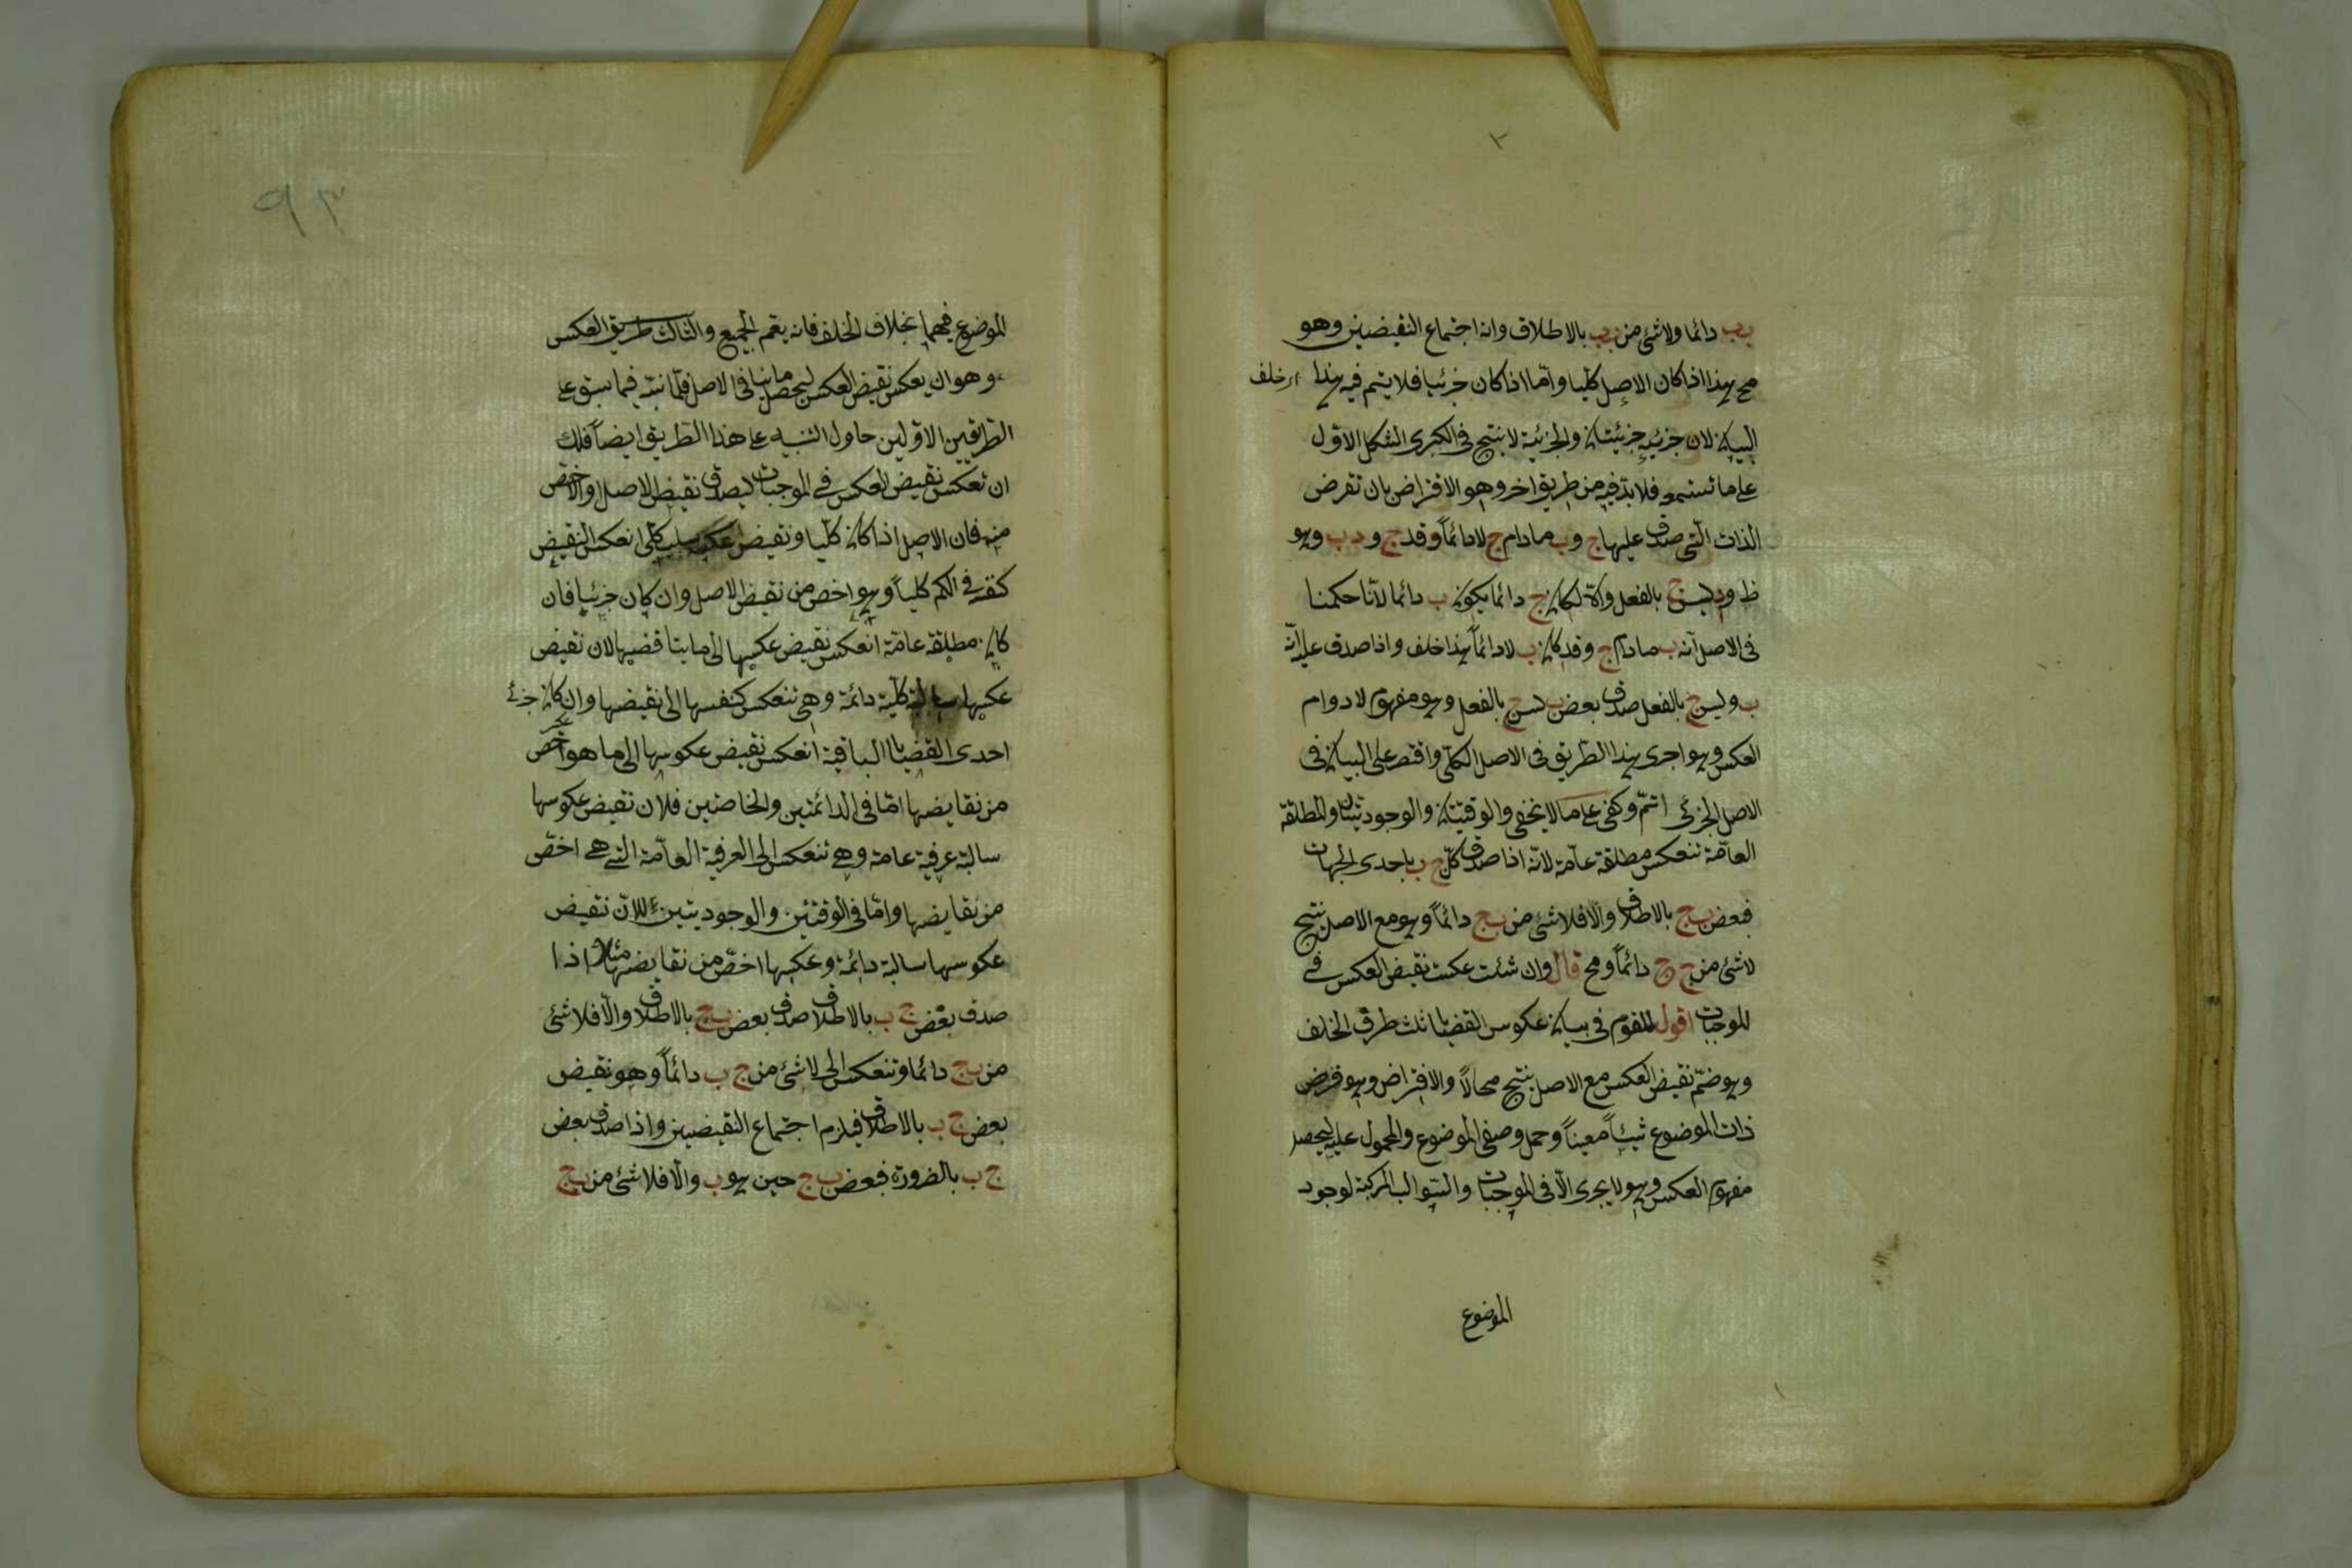 ب ب دائما ولاشئ من ب ب بالاطلاق وانه اجتماع النقيضين وهو
مح هذا اذا كان الاصل كليا وامّا اذا كان جزئيا فلا يتم فيه هذا
اى خلف
البيان لان جزئيه جزئيتان والجزئية لا ينتج فى الكبرى الشكل الاول
على ما تستمعه فلا بدّ فيه من طريق اخر وهو الافتراض بان تفرض
الذات الّتى صدق عليها ج وب مادام ج لا دائماً وقد ج ود ب وهو
ظ ود ليس ج بالفعل والاّ لكان ج دائما يكون ب دائما لانّا حكمنا
فى الاصل انّه ب مادام ج وقد كان ب لا دائماً هذا خلف واذا صدق عليه انّه
ب وليس ج بالفعل صدق بعض ب ليس ج بالفعل وهو مفهوم لادوام
العكس وهو اجرى هذا الطّريق فى الاصل الكلّى واقتصر على البيان فى
الاصل الجزئى اتمّ وكفى على ما لا يخفى والوقتيتان والوجوديتان والمطلقة
العامّة تنعكس مطلقة عامّة لانّه اذا صدق كلّ ج ب باحدى الجهات
فبعض ب ج بالاطلاق والّا فلا شئ من ب ج دائماً وهو مع الاصل ينتج
لاشئ من ج ج دائماً ومح قال وان شئت عكست نقيض العكس فى
الموجبات اقول للقوم فى بيان عكوس القضايا ثلث طرق الخلف
وهو ضمّ نقيض العكس مع الاصل ينتج محالاً والافتراض وهو فرض
ذات الموضوع شيئاً معيناً وحمل وصفى الموضوع والمحمول عليه ليحصل
مفهوم العكس وهو لا يجرى الّا فى الموجبات والسّوالب المركبة لوجود
الموضوع
٩٣
الموضوع فيهما بخلاف الخلف فانه يعم الجميع والثالث طريق العكس
وهو ان يعكس نقيض العكس ليحصل ما ينا فى الاصل فلمّا نبّه فيما سبق على
الطّريقين الاوّلين حاول التنبيه على هذا الطّريق ايضاً فلك
ان تعكس نقيض العكس فى الموجبات ليصدق نقيض الاصل او الاخصّ
منه فان الاصل اذا كان كليّا ونقيض عكسه سلب كلّى انعكس النقيض
كنفسه فى الكم كلياً وهو اخص من نقيض الاصل وان كان جزئيا فان
كان مطلقة عامّة انعكس نقيض عكسها الى ما يناقضها لان نقيض
عكسها سالبة كليّة دائمة وهى تنعكس كنفسها الى نقيضها وان كان جزئ
احدى القضايا الباقية انعكس نقيض عكوسها الى ما هو اخصّ
من نقايضها امّا فى الدائمتين والخاصتين فلان نقيض عكوسها
سالبة عرفية عامة وهى تنعكس الى العرفية العامّة التى هى اخصّ
من نقايضها وامّا فى الوقتئين والوجوديتين فلانّ نقيض
عكوسها سالبة دائمة وعكسها اخصّ من نقايضها مثلا اذا
صدق بعض ج ب بالاطلاق صدق بعض ب ج بالاطلاق والّا فلا شئ
من ب ج دائما وتنعكس الى لا شئ من ج ب دائماً وهو نقيض
بعض ج ب بالاطلاق فيلزم اجتماع النقيضين واذا صدق بعض
ج ب بالضرورة فبعض ب ج حين هو ب والّا فلا شئ من ب ج